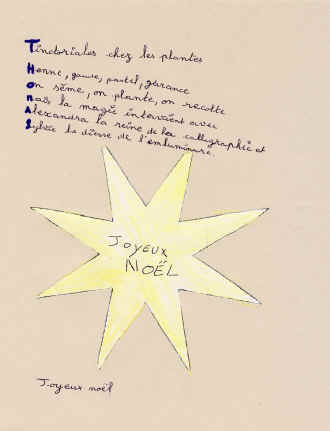 Tinctoriales chez les plantes
Henné, gaude, pastel, garance
On sème, on plante, on recolte
Mais la magie intervient avec
Alexandra la reine de la calligraphie et
Sylvie la déesse de l'enluminure.
Joyeux
NOËL
Joyeux noël